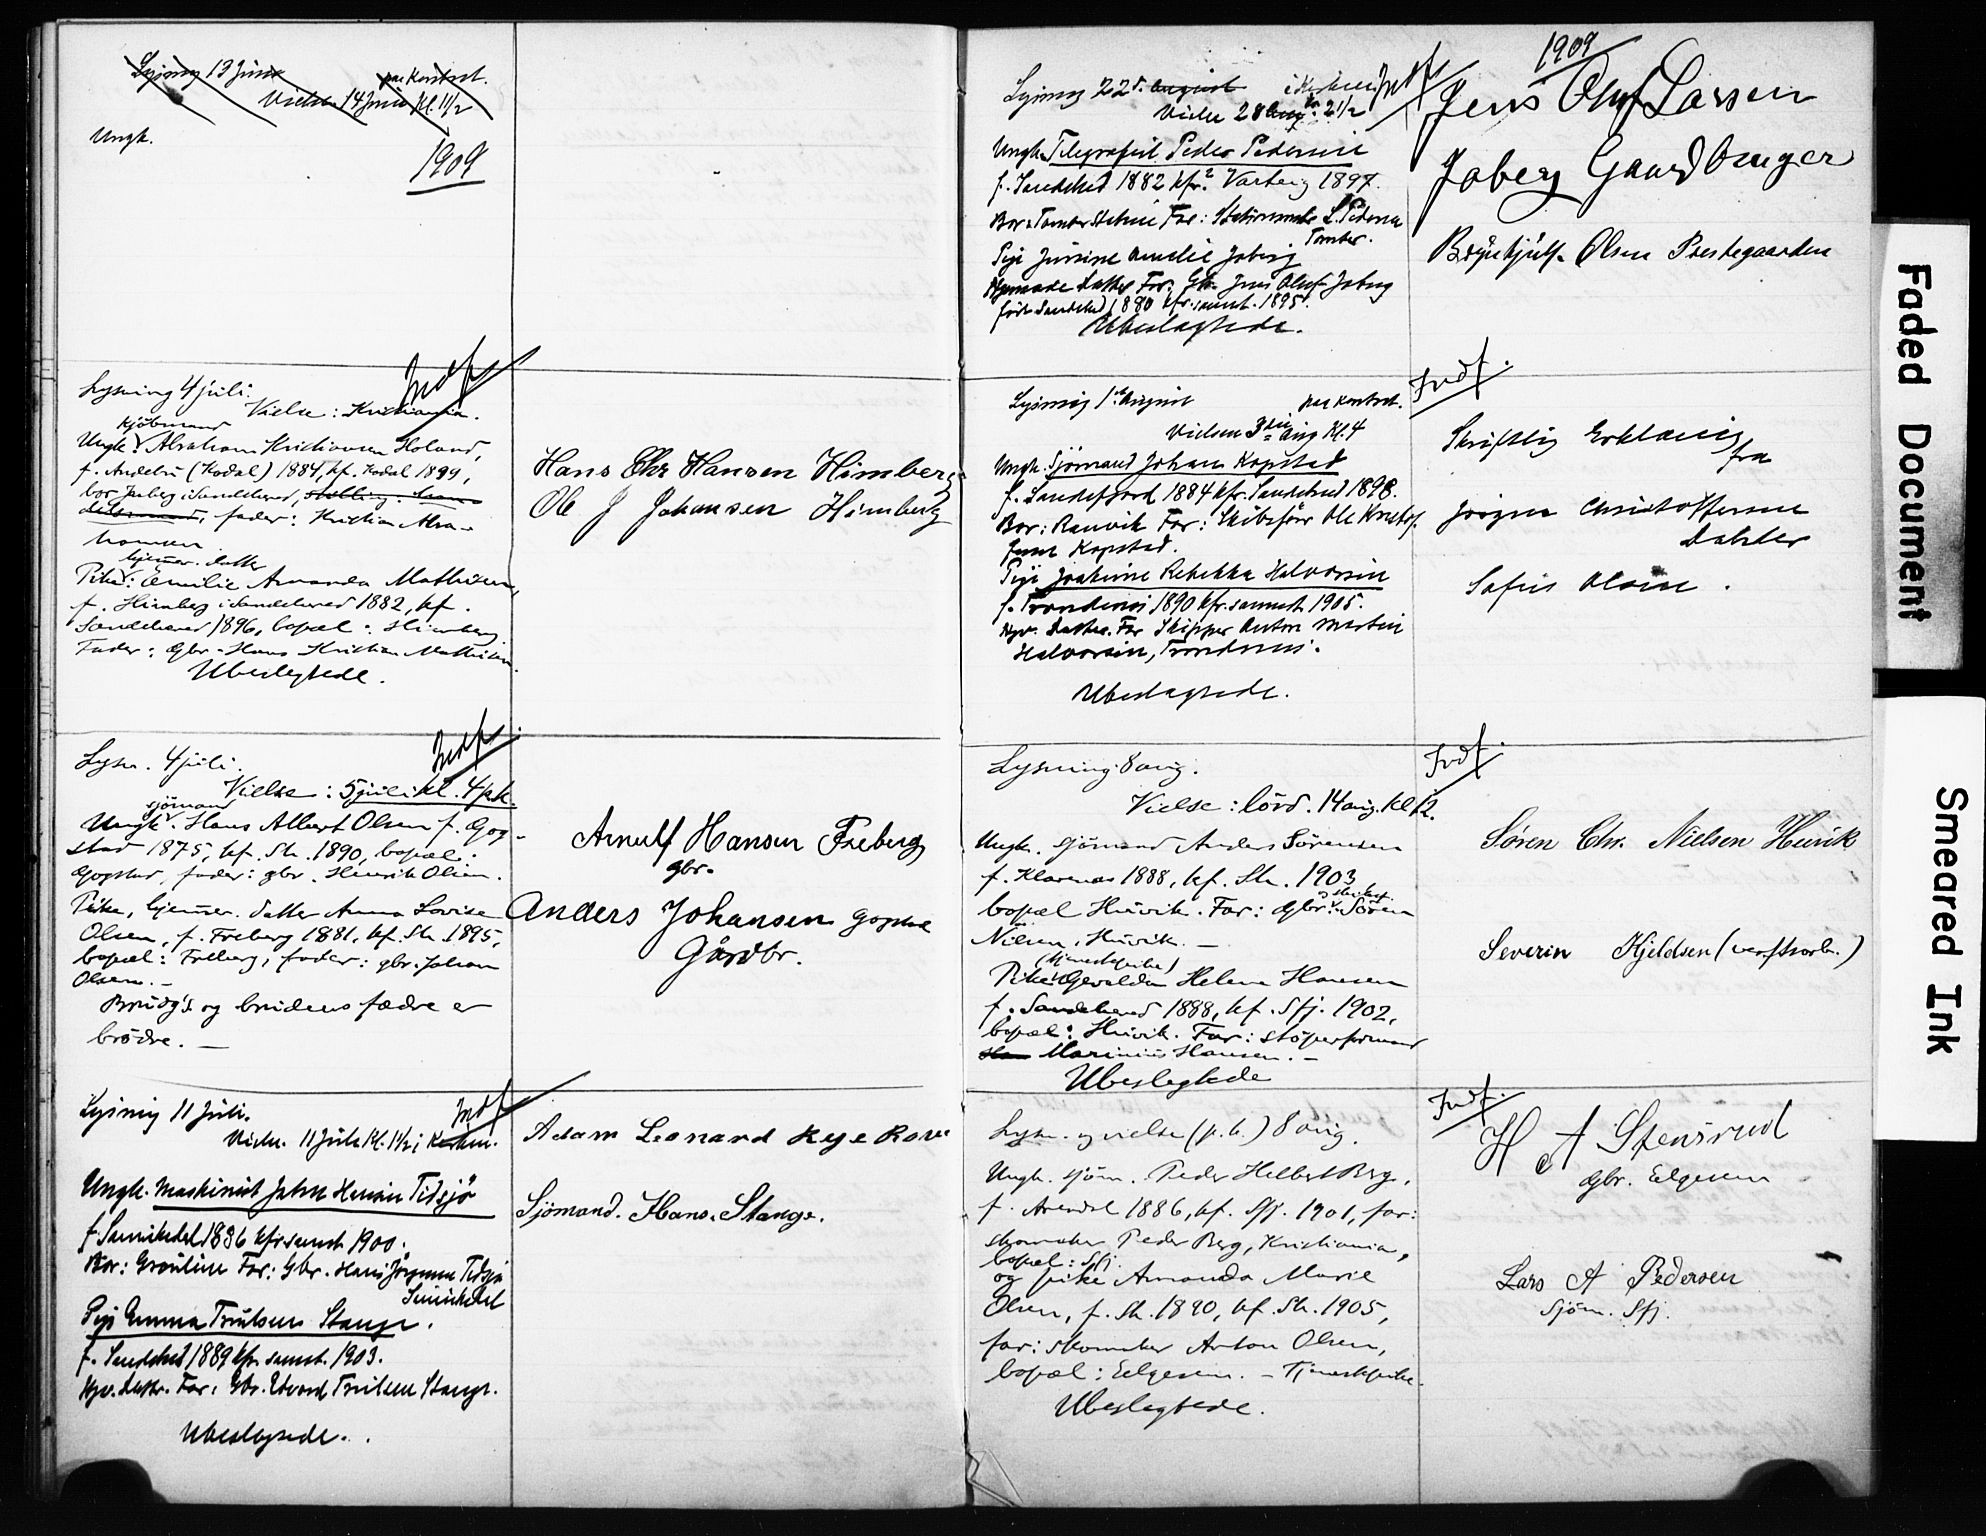 Lysning 13 Juni
paa kontoret.
Vielse 14 Juni Kl. 1 1/2
Ungk.
1909
Lysning 4 juli.
Indf.
Vielse: Kristiania.
kjöbmand
Ungk. Abraham Kristiansen Holand,
f. Andebu (Kodal) 1884, kf. Kodal 1899,
bor Jaberg i Sandeherred,
fader: Kristian Abra-
hamsen
hjemmev. datter
Pike: Emilie Amanda Mathisen,
f. Himberg i Sandeherred 1882, kf.
Sandeherred 1896, bopæl: Himberg
Fader: Gbr. Hans Kristian Mathisen.
Ubeslegtede.
Hans Chr Hansen Himberg
Ole J Johansen Himberg
Lysn. 4 juli.
Indf.
Vielse: 5 juli kl. 4 på k.
sjömand
Ungk. Hans Albert Olsen f. Gog-
stad 1875, kf. Sh. 1890, bopæl:
Gogstad, fader: gbr. Henrik Olsen.
Pike, hjemmev. datter Anna Lovise
Olsen, f. Freberg 1881, kf. Sh. 1895,
bopæl: Freberg, fader: gbr. Johan
Olsen. -
Brudg's og brudens fædre er
brödre. -
Arnulf Hansen Freberg
gbr.
Anders Johansen Gogstad
Gårdbr.
Lysning 11 Juli.
Indf.
Vielse. 11 Juli Kl. 1 1/2 i Kirken.
Ungk. Maskinist Johan Herman Tidsjö
f. Sannikedal 1886 kfr. samst. 1900.
Bor: Grönline Far: Gbr. Hans Jörgensen Tidsjö
Sannikedal
Pige Emma Trulsens Stange.
f. Sandeherred 1889 kfr. samst. 1903.
Hjv. Datter. Far: Gbr. Edvard Trulsen Stange.
Ubeslegtede.
Adam Leonard Reye Rove
Sjömand. Hans. Stange.
1909
Lysning 22. August i Kirken
Indf.
Vielse 28 Aug. Kl. 2 1/2
Ungk. Telegrafist Peder Pedersen
f. Sandeherred 1882 kfr. Varteig 1897.
Bor: Tomter Station Far: Stationsmester L. Pedersen
Tomter.
Pige Jensine Amalie Joberg
Hjemmev. Datter Far: Gbr. Jens Oluf Joberg
född Sandeherred 1880 kfr. samst. 1895.
Ubeslagtede.
Jens Oluf Larsen
Joberg Gaardbruger
Brynhjulf Olsen Prestegaarden
Lysning 1ste August paa kontoret.
Indf.
Vielsen 3die Aug Kl. 4
Ungk. Sjömand Johan Kopstad
f. Sandefjord 1884 kfr. Sandeherred 1898.
Bor: Ranvik Far: Skibsförer Ole Kristof-
fersen Kopstad.
Pige Joakime Rebekka Halvorsen
f. Trondenes 1890 kfr. samst. 1905.
Hjv. Datter. Far Skipper Anton Martin
Halvorsen, Trondenes.
Ubeslagtede.
Skriftlig Erklæring
fra
Jörgen Christoffersen
Dahler
Sofus Olsen.
Lysning: 8 aug.
Indf.
Vielse: lörd. 14 aug. kl 12.
Ungk. sjömand Anders Sörensen
f. Klavenes 1888, kf. Sh. 1903
bopæl Huvik. Far: Gbr. Sören
Nilsen, Huvik. -
(tjenestepike)
Pike: Gevaldine Helene Hansen
f. Sandeherred 1888, kf. Sfj. 1902,
bopæl: Huvik. Far: stöperformand
Marinius Hansen. -
Ubeslegtede
Søren Chr. Nielsen Huvik
Severin Kjeldsen (verftsarb.)
Lysn. og vielse (p.k.) 8 aug.
Indf.
Ungk. sjöm. Peder Helbert Berg,
f. Arendal 1886, kf. Sfj. 1901, far:
skomaker Peder Berg, Kristiania,
bopæl: Sfj.
og pike Amanda Marie
Olsen, f. Sh. 1890, kf. Sh. 1905,
far: skomaker Anton Olsen,
bopæl: Eelgesem. - Tjenestepike.
Ubeslegtede.
H A Stensrud
Gbr. Eelgesem
Lars A Pedersen
Sjöm. Sfj.
Faded Document
Smeared Ink